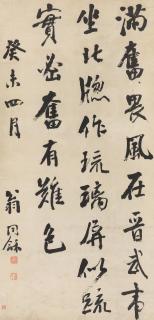 滿奮畏風在晉武帝
坐北牕作琉璃屏似疏
實密奮有難色
癸未四月
翁同龢